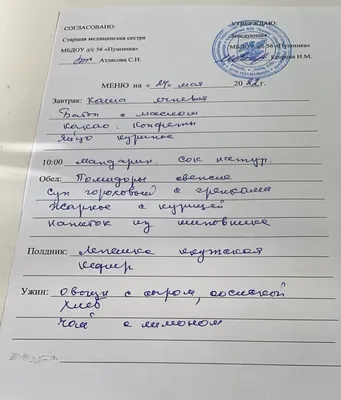 СОГЛАСОВАНО:
Старшая медицинская сестра
МБДОУ д/с 56 «Пушинка»
Атласова С.Н.
УТВЕРЖДАЮ:
Заведующая
МБДОУ д/с 56 «Пушинка»
Егорова И.М.
МЕНЮ на «27» мая 2022г.
Завтрак: Каша ячневая
Батон с маслом
Какао. Конфеты
Яйцо куриное
10:00 мандарин. сок натур.
Обед: Помидоры свежие
Суп гороховый с гренками
Жаркое с курицей
напиток из шиповника
Полдник: Лепешка якутская
Кефир
Ужин: Овощи с сыром,
Хлеб
Чай с лимоном